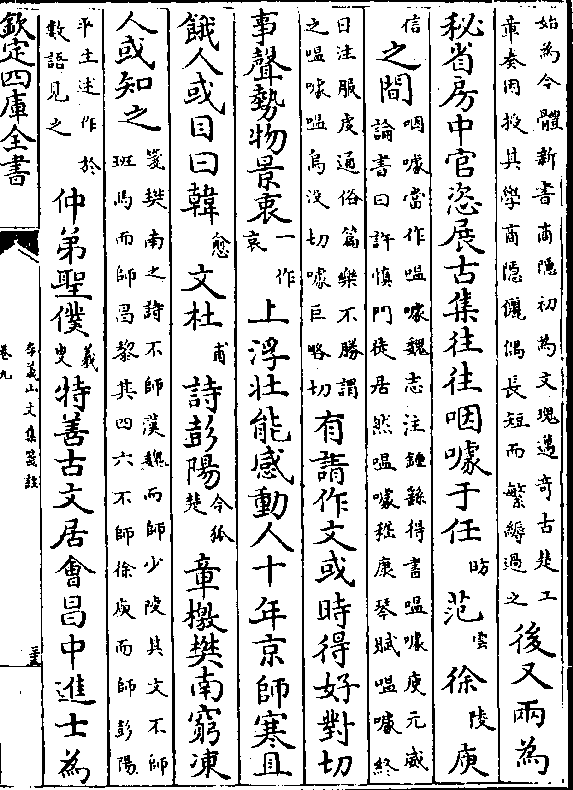 始為今體新書商隱初為文瑰邁奇古楚工
章奏因授其學商隱儷偶長短而繁縟過之
後又兩為
秘省房中官恣展古集往往咽噱于任昉范雲徐陵庾
信之間
咽噱當作嗢噱魏志注鍾繇得書嗢噱庾元威
論書曰許慎門徒居然嗢噱嵇康琴賦嗢噱終
日注服虔通俗篇樂不勝謂
之嗢噱嗢烏没切噱巨略切
有請作文或時得好對切
事聲勢物景衷一作哀上浮壯能感動人十年京師寒且
餓人或目曰韓愈文杜甫詩彭陽令狐楚章檄樊南窮凍
人或知之
箋樊南之詩不師漢魏而師少陵其文不師
班馬而師昌黎其四六不師徐庾而師彭陽
平生述作於
數語見之
仲弟聖僕羲叟特善古文居會昌中進士為
欽定四庫全書
李義山文集箋註
卷九